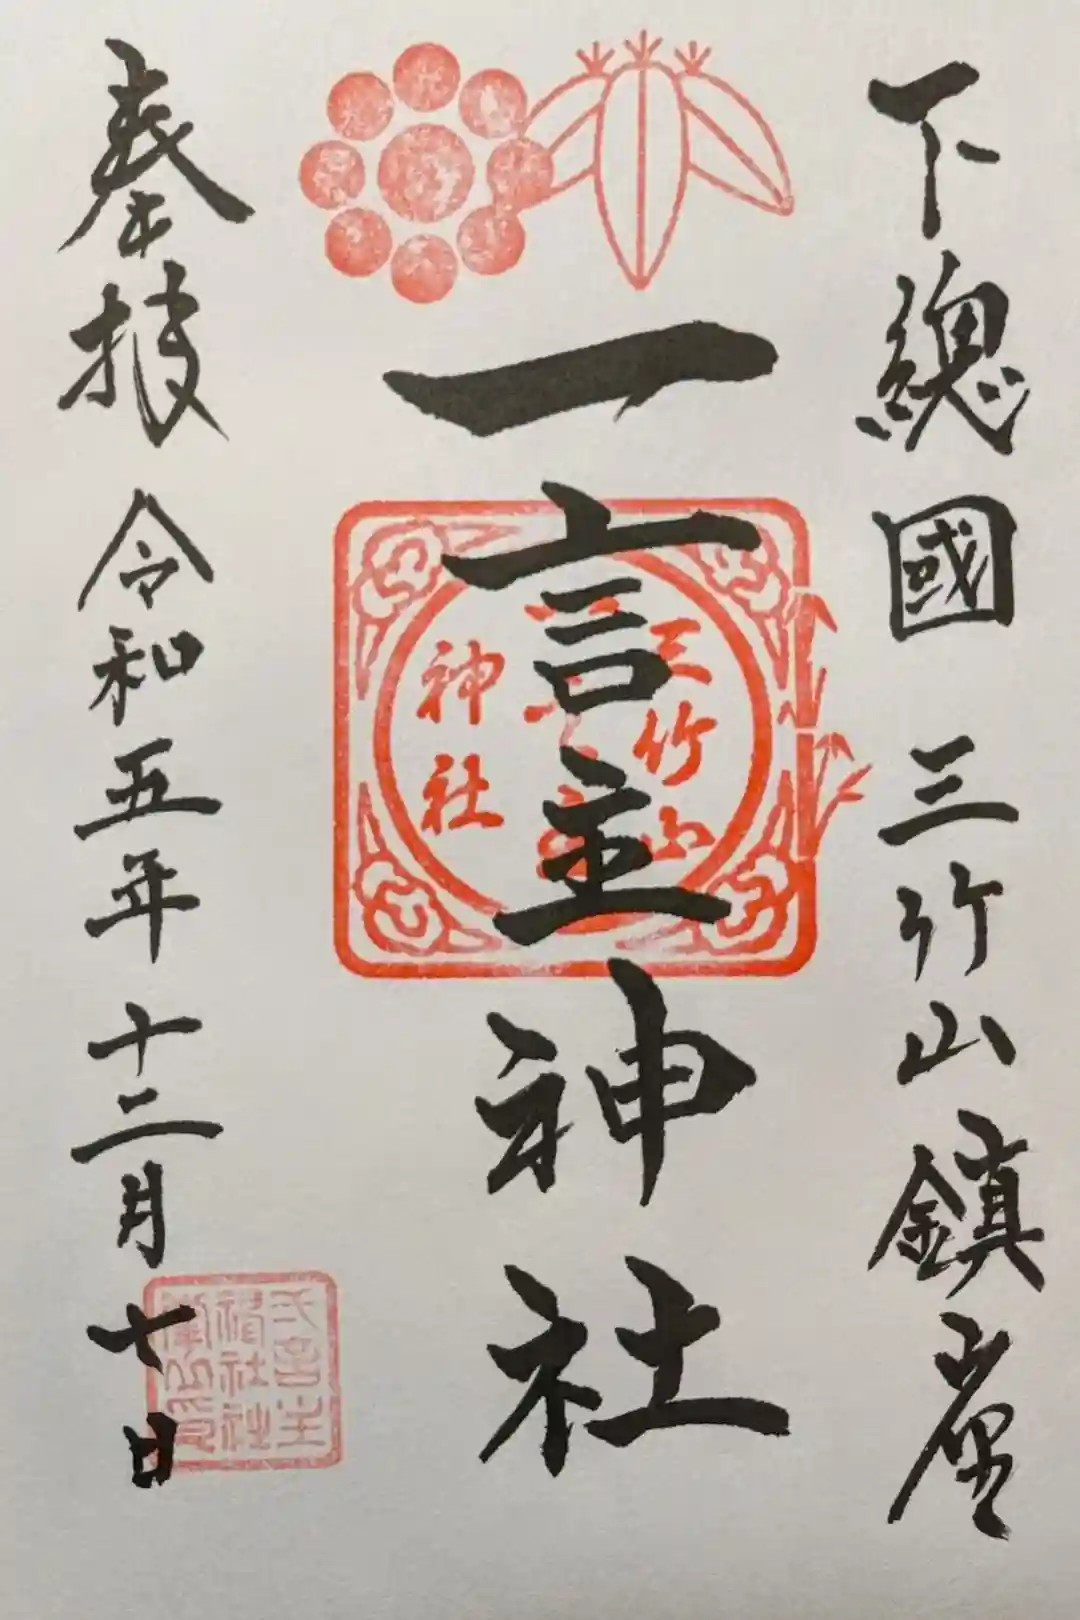 下總國 三竹山鎮座
一言主神社
三竹山
神社
奉拝 令和五年 十二月 十日